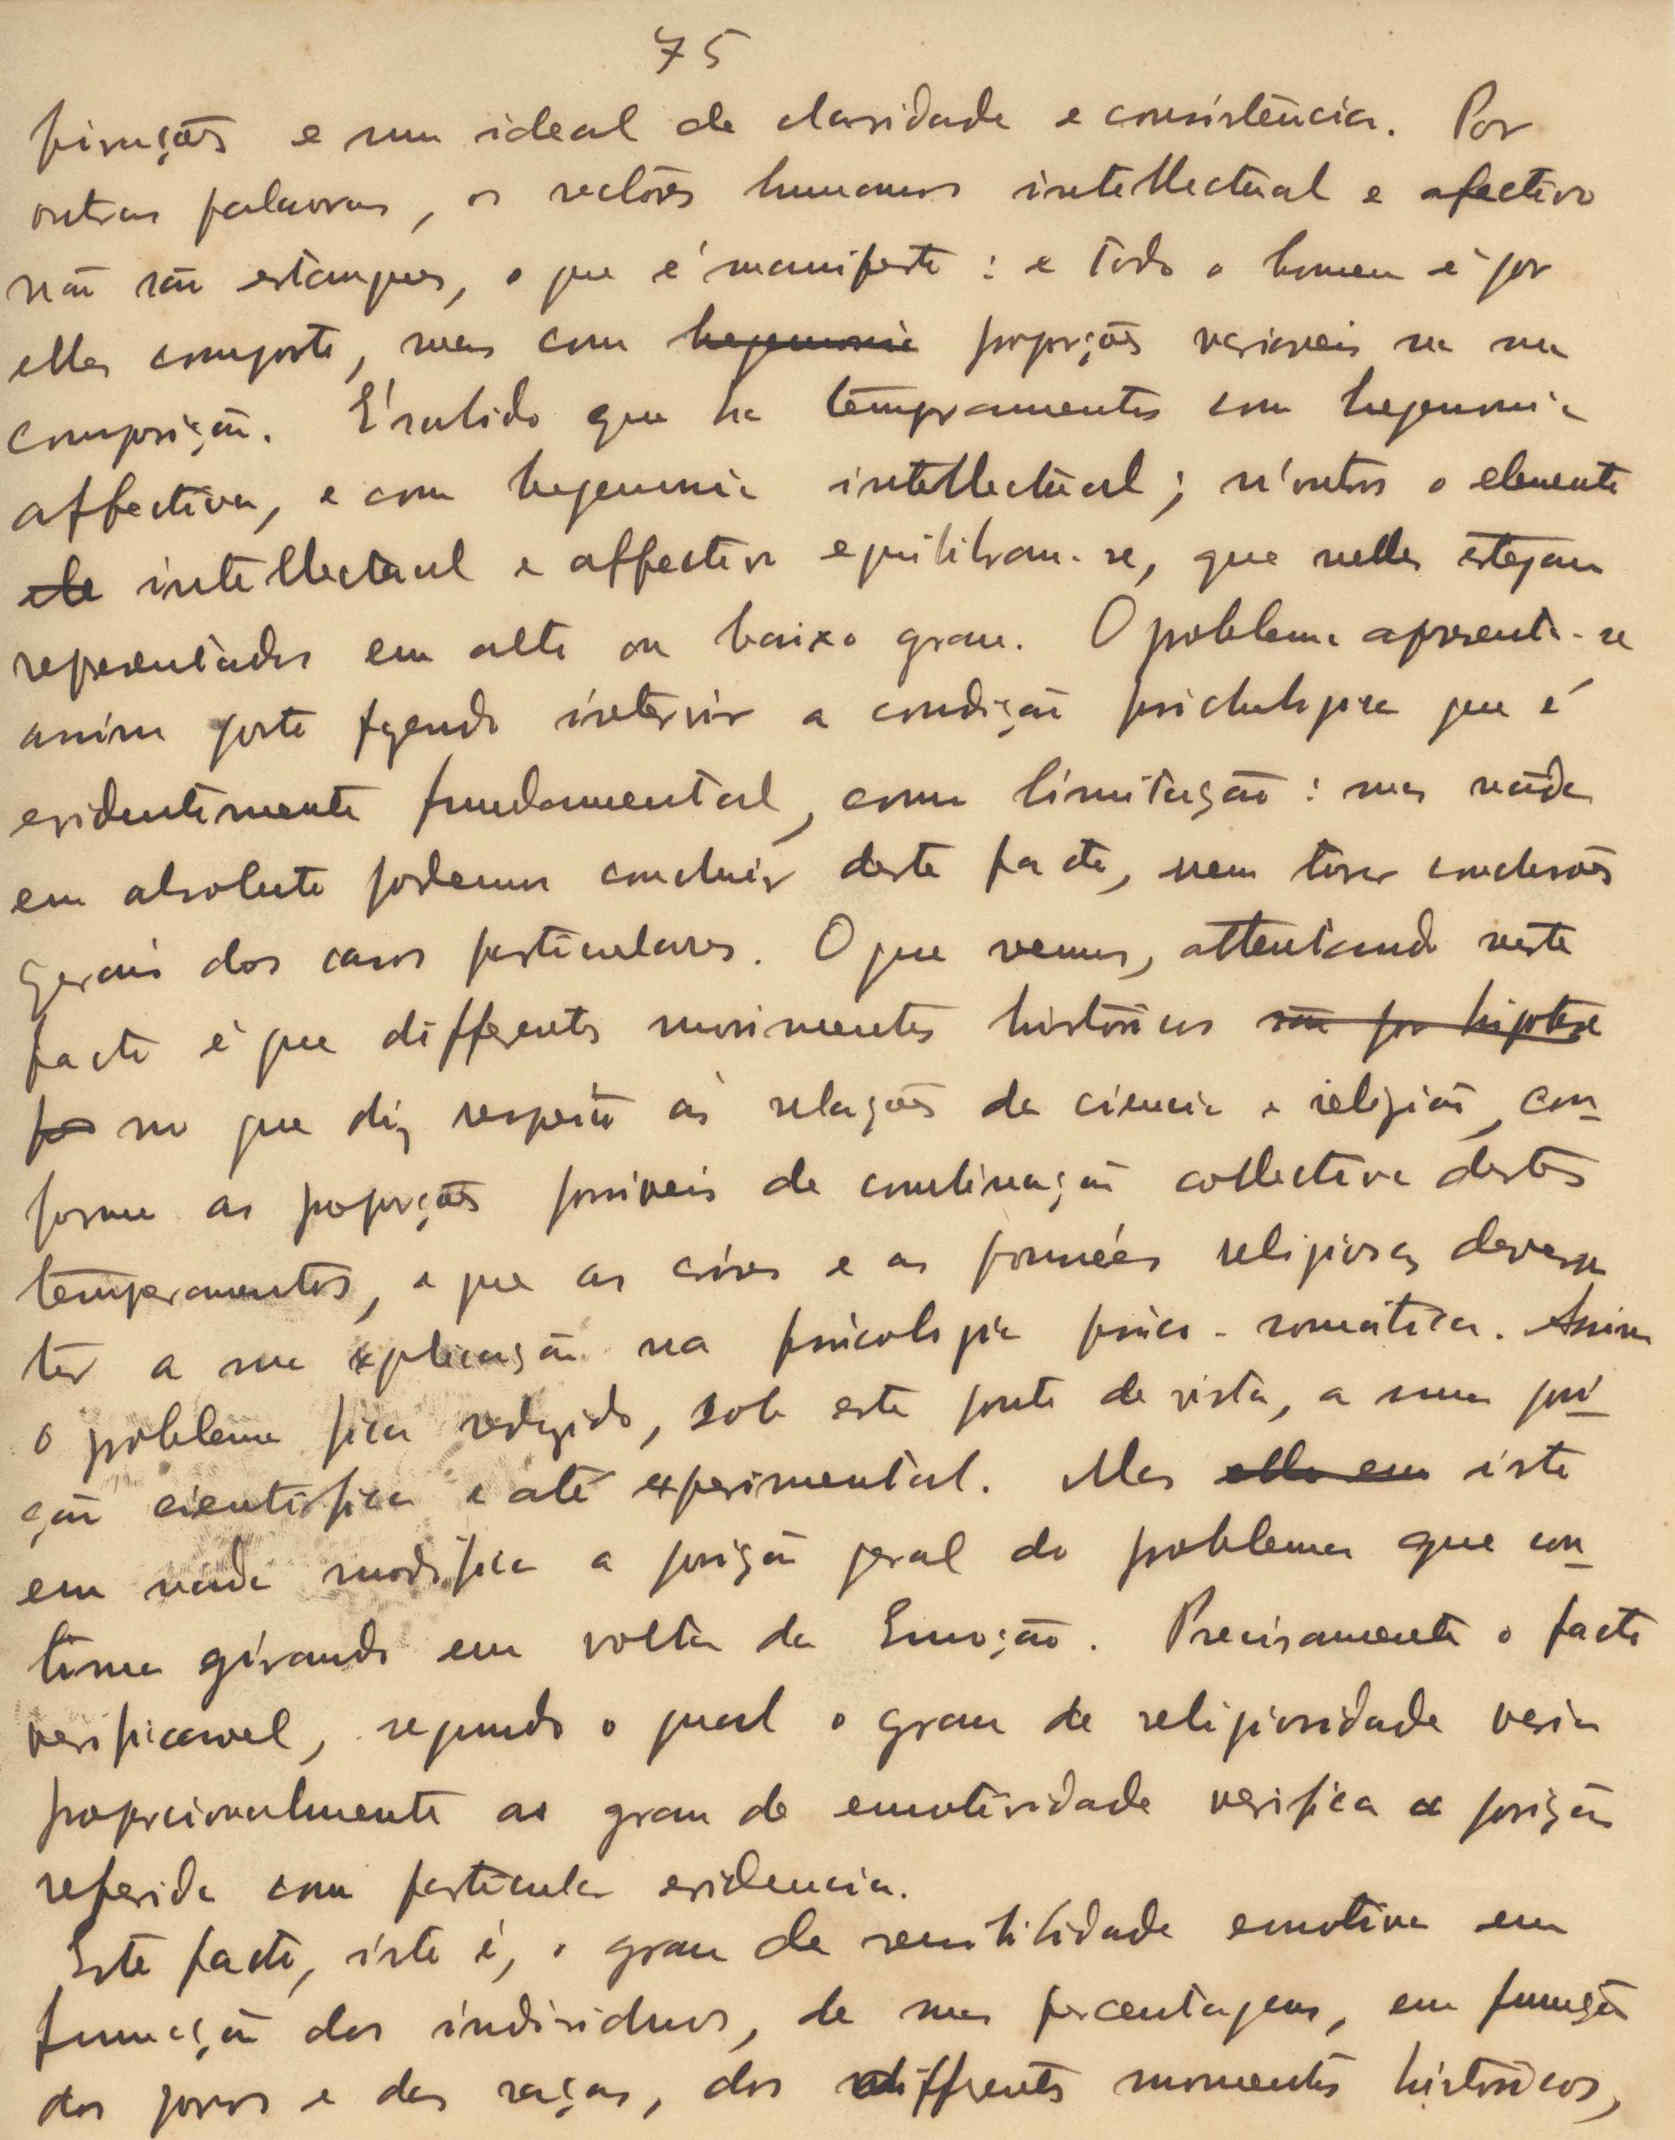 75
pirações e um ideal de claridade e consistência. Por
outras palavras, os sectôres humanos intellectual e afectivo
não são estanques, o que é manifesto : e todo o homem é por
elles composto, mas com hegemonia proporções variaveis na sua
composição. É sabido que ha temperamentos com hegemonia
affectiva, e com hegemonia intellectual ; n'outros o elemento
ele intellectual e affectivo equilibram-se, que nelles estejam
representados em alto ou baixo grau. O problema apresenta-se
assim posto fazendo intervir a condição psichologica que é
evidentemente fundamental, como limitação : mas nada
em absoluto podemos concluir deste facto, nem tirar conclusões
gerais dos casos particulares. O que vemos, attentando neste
facto é que differentes movimentos históricos são por hipotese
no que diz respeito ás relações da ciencia e religião, con-
forme as proporções possiveis de combinação collectiva destes
temperamentos, e que as crises e as religiosas devem
ter a sua explicação na psicologia fisico-somática. Assim
o problema fica reduzido, sob este ponto de vista, a uma posi-
ção cientifica e até experimental. Mas ella em isto
em nada modifica a posição geral do problema que con-
tinua girando em volta da Emoção. Precisamente o facto
verificavel, segundo o qual o grau de religiosidade varia
proporcionalmente ao grau de emotividade verifica a posição
referida com particular evidencia.
Este facto, isto é, o grau de sensibilidade emotiva em
funcção dos individuos, de suas percentagens, em funcção
dos povos e das raças, dos differentes momentos históricos,